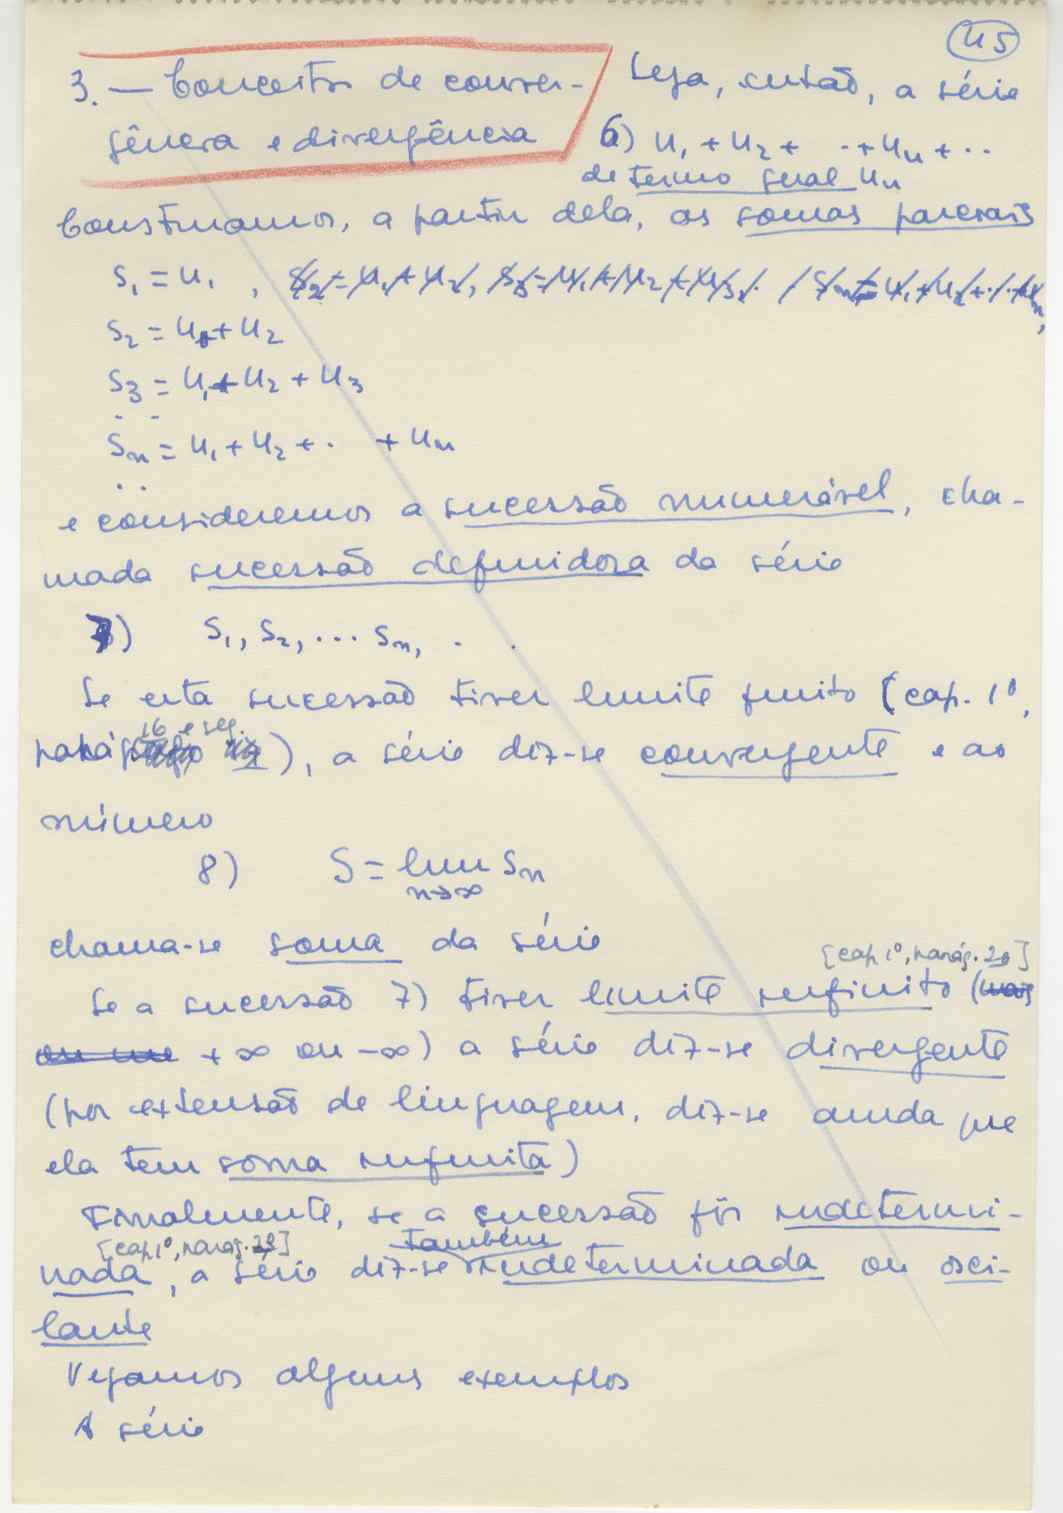 45
3. — Conceitos de conver-
gência e divergência
Seja, então, a série
6) u₁ + u₂ + ··+ uₙ + ··
de termo geral uₙ
Construamos, a partir dela, as somas parciais
s₁ = u₁ , s₂ = u₁ + u₂, s₃ = u₁ + u₂ + u₃, . sₙ = u₁ + u₂ + ··· + uₙ,
s₂ = u₁ + u₂
s₃ = u₁ + u₂ + u₃
. .
sₙ = u₁ + u₂ + · + uₙ
. .
e consideremos a sucessão numerável, cha-
mada sucessão definidora da série
7) s₁, s₂, ··· sₙ, · ·
Se esta sucessão tiver limite finito (cap. 1º,
16 e seg.
parág), a série diz-se convergente e ao
número
8) S = lim sₙ
n→∞
chama-se soma da série
[cap 1º, parág. 28]
Se a sucessão 7) tiver limite infinito (mais
ou me + ∞ ou - ∞) a série diz-se divergente
(por extensão de linguagem, diz-se ainda que
ela tem soma infinita)
Finalmente, se a sucessão fôr indetermi-
[cap 1º, parág. 28] também
nada, a série diz-se indeterminada ou osci-
lante
Vejamos alguns exemplos
A série